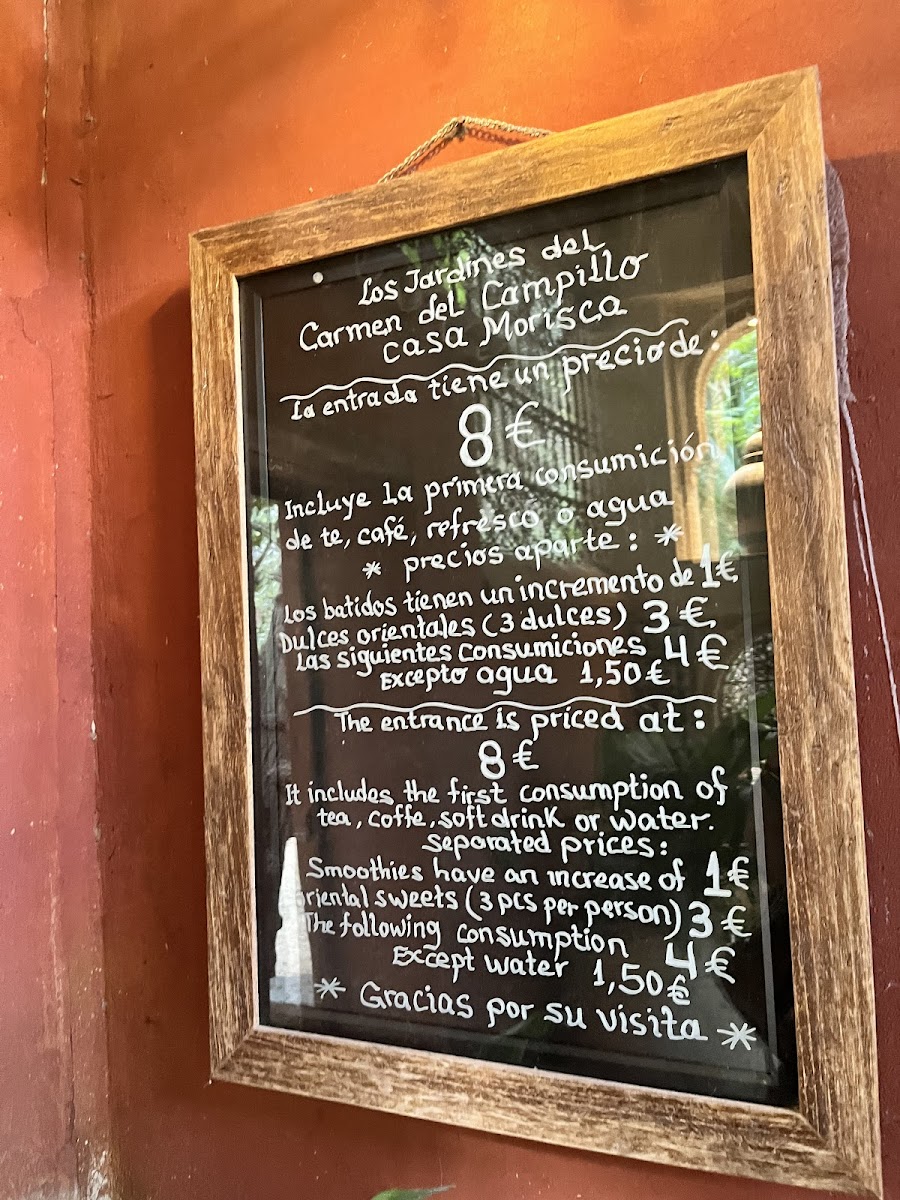 Los Jardines del
Carmen del Campillo
casa Morisca
La entrada tiene un precio de:
8€
Incluye La primera consumición
de te, café, refresco o agua
* precios aparte: *
Los batidos tienen un incremento de 1€
Dulces orientales (3 dulces) 3€
Las siguientes consumiciones 4€
Excepto agua 1,50€
The entrance is priced at:
8€
It includes the first consumption of
tea, coffe, soft drink or water.
separated prices:
Smoothies have an increase of 1€
oriental sweets (3 pcs per person) 3€
The following consumption 4€
Except water 1,50€
* Gracias por su visita *